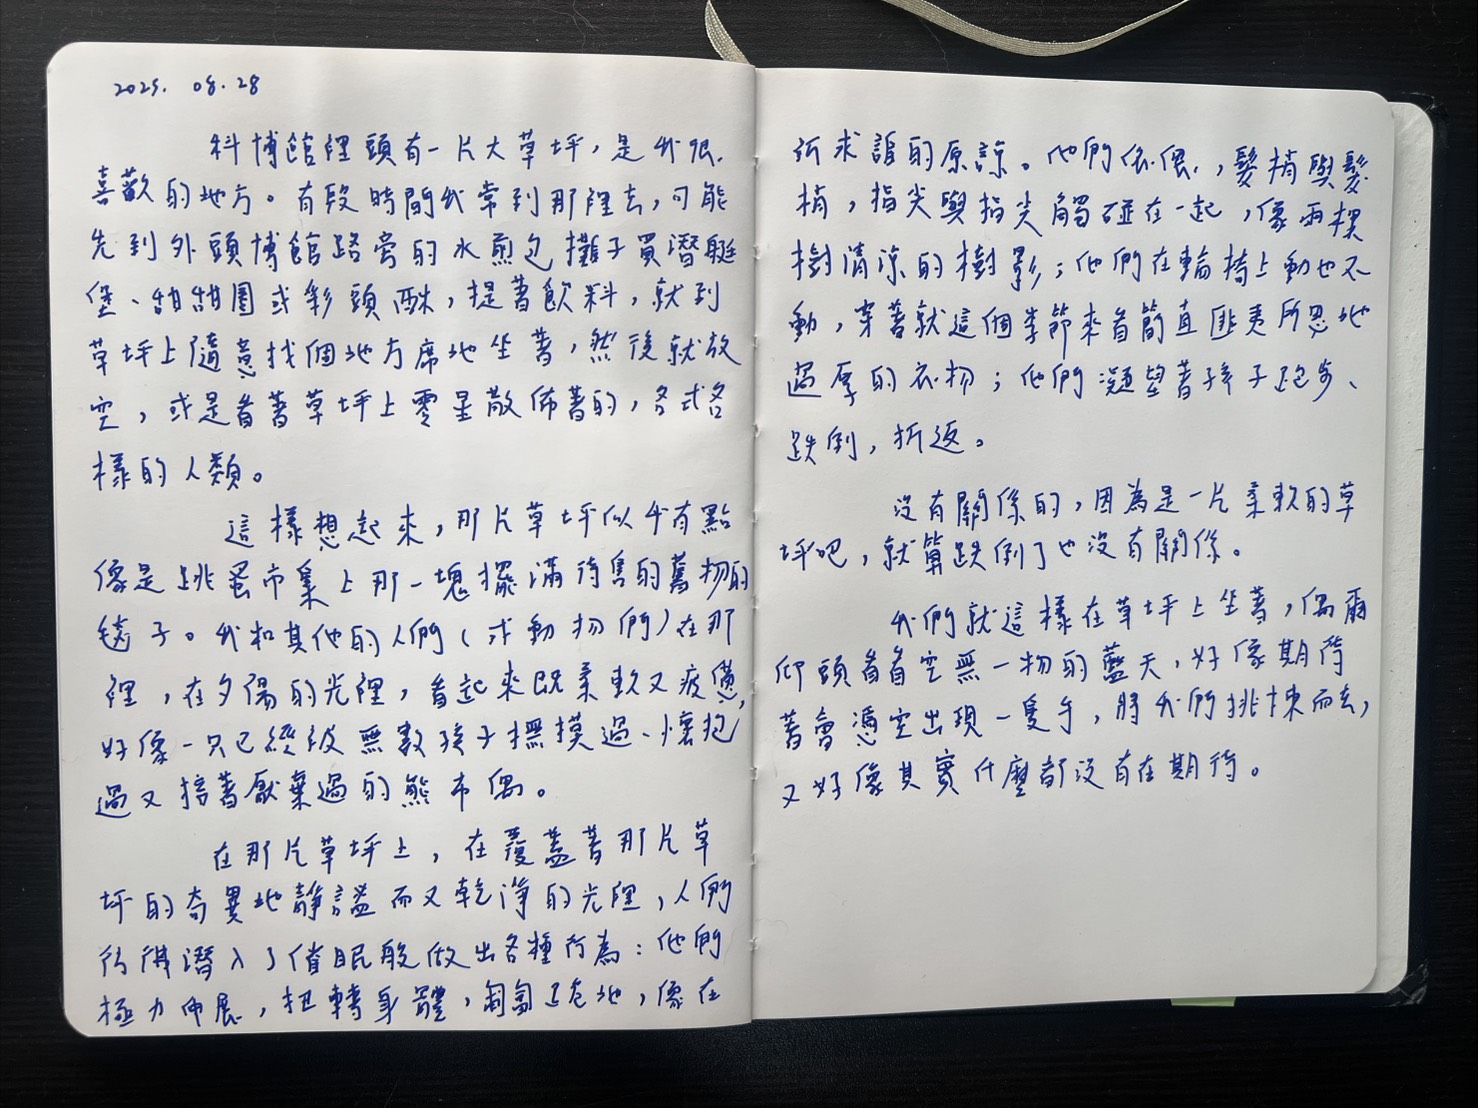 2025. 08. 28
科博館裡頭有一片大草坪,是我很
喜歡的地方。有段時間我常到那裡去,可能
先到外頭博館路旁的水煎包攤子買潛艇
堡、甜甜圈或彩頭酥,提著飲料,就到
草坪上隨意找個地方席地坐著,然後就放
空,或是看著草坪上零星散佈著的,各式各
樣的人類。
這樣想起來,那片草坪似乎有點
像是跳蚤市集上那一塊擺滿待售的舊物的
毯子。我和其他的人們(或動物們)在那
裡,在夕陽的光裡,看起來既柔軟又疲憊,
好像一只已經被無數孩子撫摸過、懷抱
過又接著厭棄過的熊布偶。
在那片草坪上,在覆蓋著那片草
坪的奇異地靜謐而又乾淨的光裡,人們
彷彿潛入了催眠般做出各種行為:他們
極力伸展,扭轉身體,匍匐跪地,像在
祈求誰的原諒。他們依偎,,髮梢與髮
梢,指尖與指尖觸碰在一起,像兩棵
樹清涼的樹影;他們在輪椅上動也不
動,穿著就這個季節來看簡直匪夷所思地
過厚的衣物;他們凝望著孩子跑步、
跌倒,折返。
沒有關係的,因為是一片柔軟的草
坪吧,就算跌倒了也沒有關係。
我們就這樣在草坪上坐著,偶爾
仰頭看看空無一物的藍天,好像期待
著會憑空出現一隻手,將我們挑揀而去,
又好像其實什麼都沒有在期待。